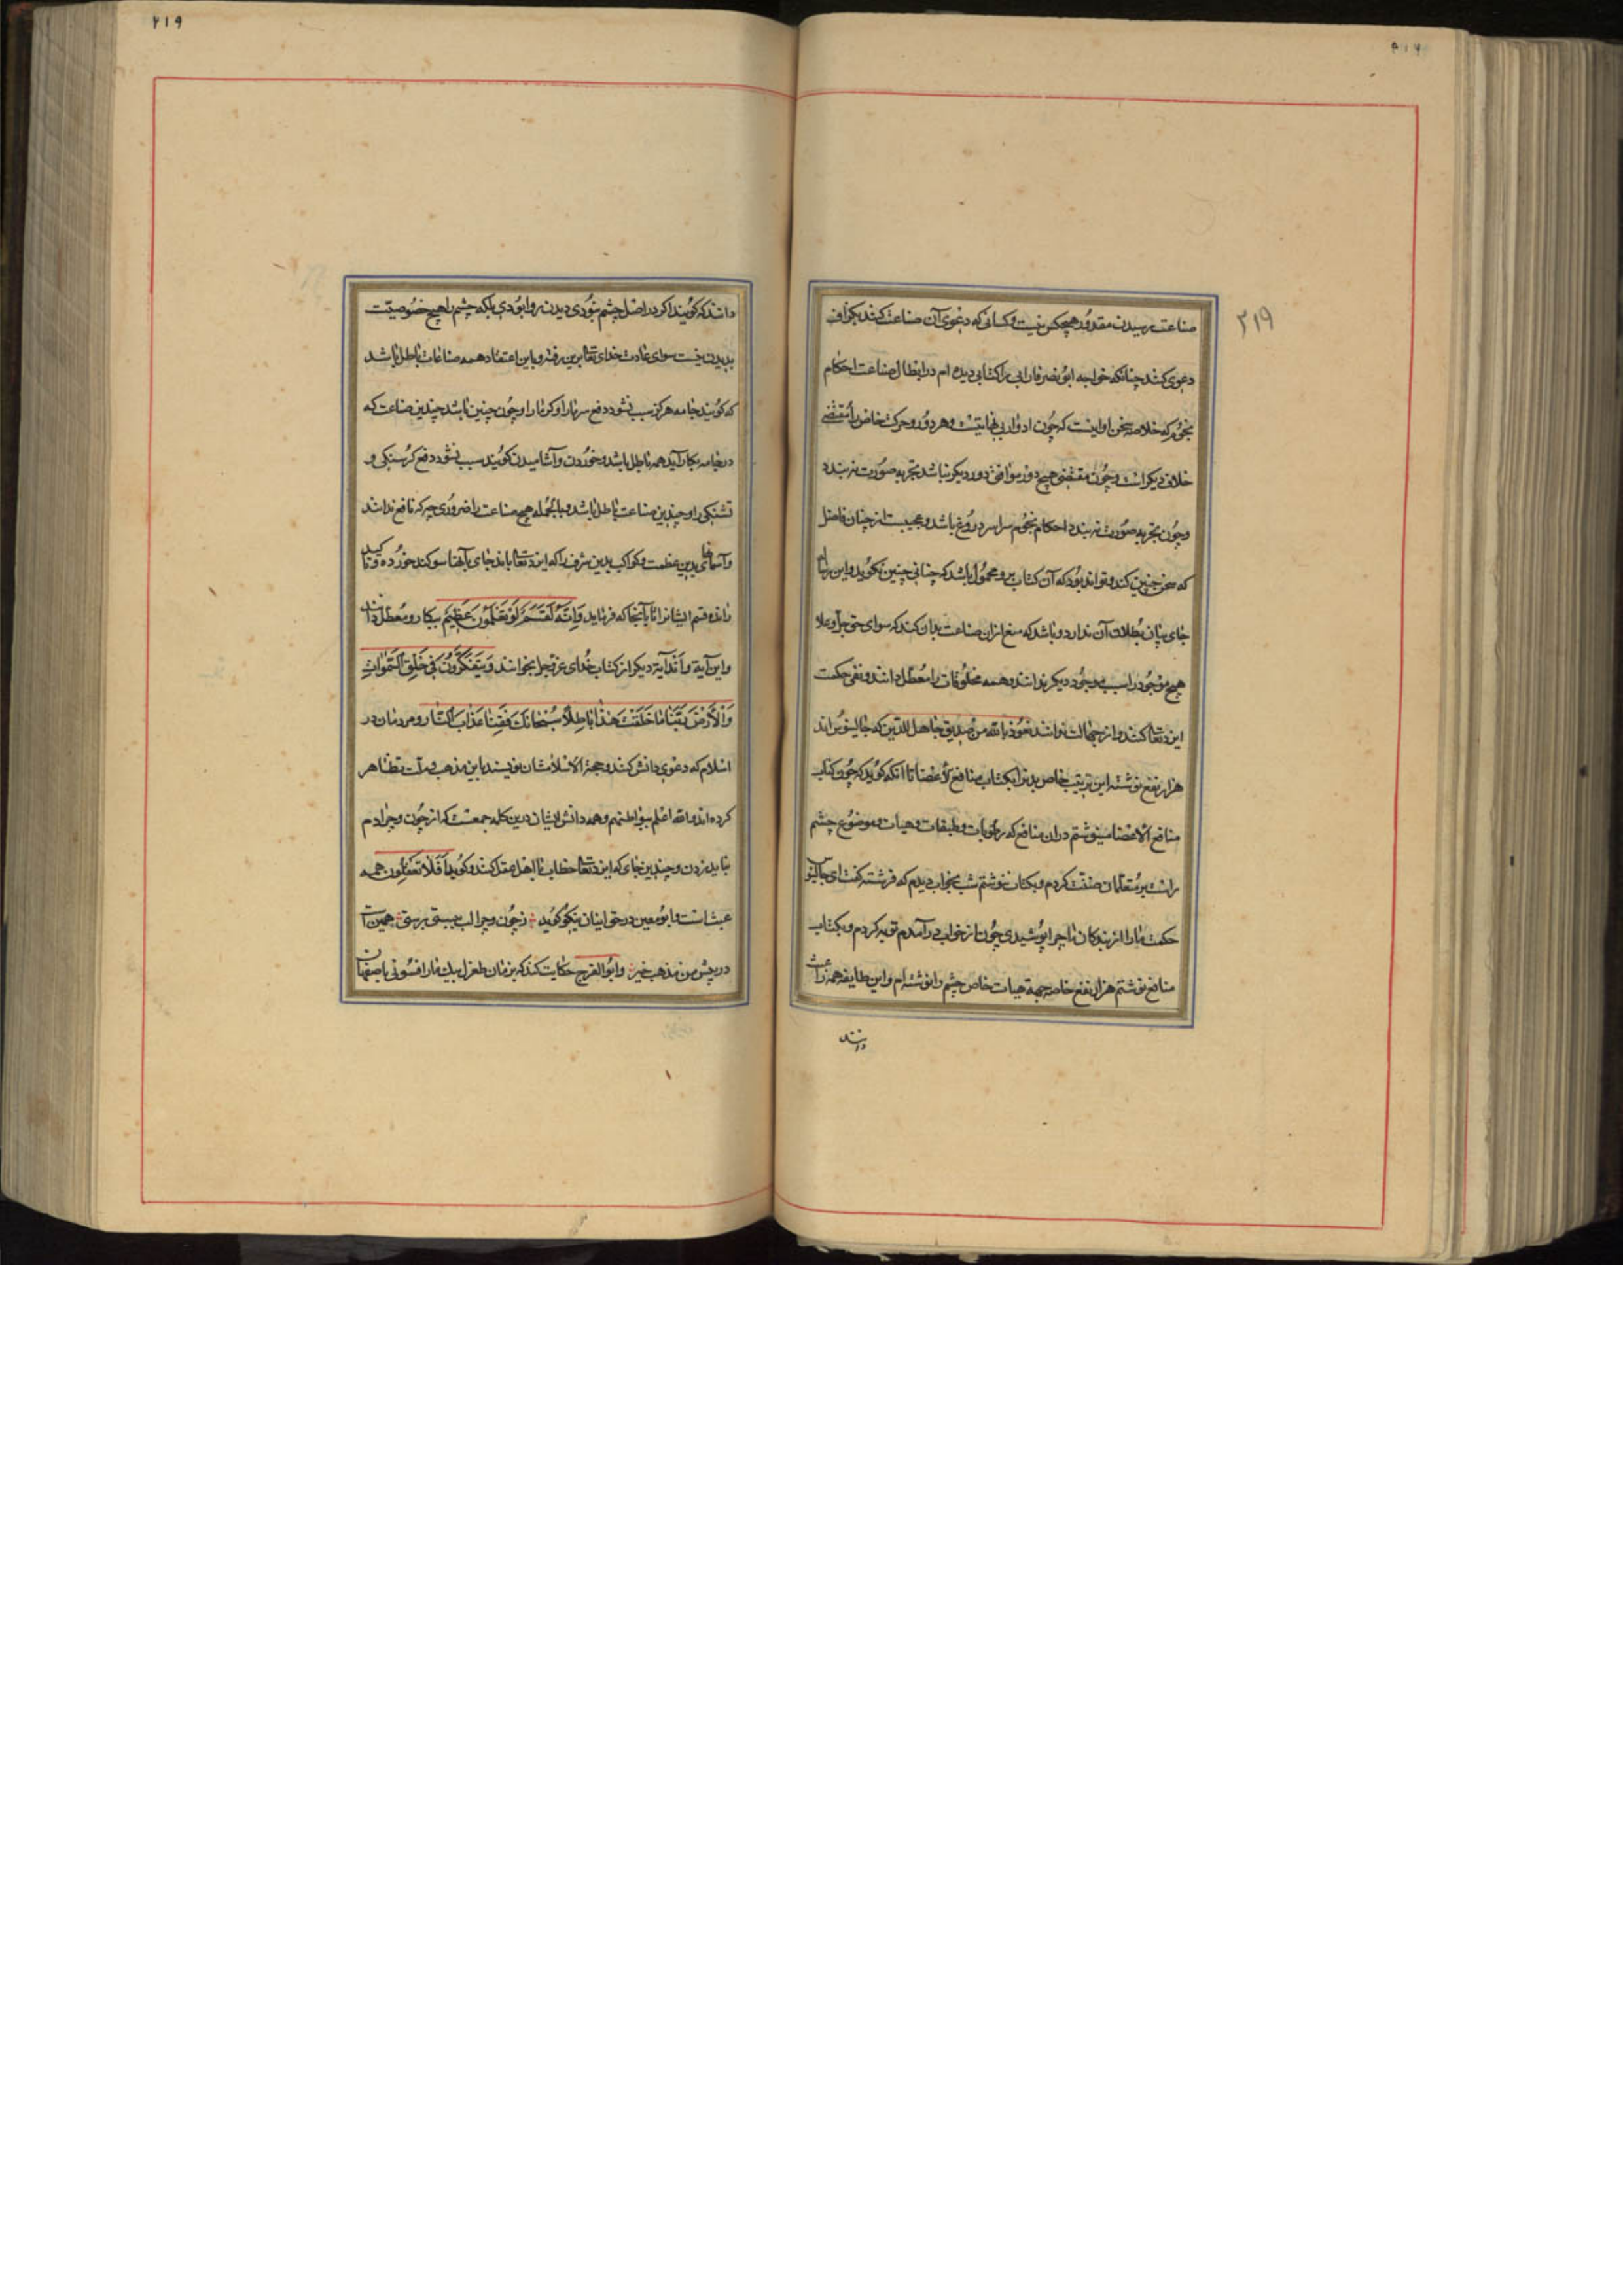 ۲۱۹
صناعت رسیدن مقدور هیچکس نیست و کسانی که دعوی آن صناعت کنند بکزاف
دعوی کنند چنانکه خواجه ابونصر فارابی را کتابی دیده ام در ابطال صناعت احکام
نجوم که خلاصه سخن او اینست که چون ادوار بی نهایتست و هر دور و حرکت خاص را مقتضی
خلاف دیکر است و چون مقتضی هیچ دور موافق دور دیکر نباشد تجربه صورت نه بندد
و چون تجربه صورت نه بندد احکام نجوم سراسر دروغ باشد و عجیبست از چنان فاضل
که سخن چنین کند و تواند بود که آن کتاب برو محمول باشد که چنانی چنین نکوید و این رساله
جای بیان بطلان آن ندارد و باشد که منع ازان صناعت بدان کنند که سوای حق جل و علا
هیچ موجود را سبب موجود دیکر ندانند و همه مخلوقات را معطل دانند و نفی حکمت
ایزد تعالی کنند و از جهالت نوانند نعوذ بالله من صدیق جاهل للدین که جالینوس اند
هزار نفع نوشته این ترتیب خاص بدن را بکتاب منافع الاعضا تا انکه کوید که چون کتاب
منافع الاعضا مینوشتم دران منافع که رطوبات و طبقات و هیات و موضوع چشم
راست بر متعلمان ضنت کردم و بکتاب ننوشتم شب بخواب دیدم که فرشته کفت ای جالینوس
حکمت مارا از بندکان ما چرا پوشیدی چون از خواب در آمدم توبه کردم و بکتاب
منافع نوشتم هزار نفع خاصه جهة هیات خاص چشم را نوشته ام و این طایفه همه زان
دانند
۲۱۹
دانند که کویند اکر در اصل چشم نبودی دیدن روا بودی بلکه چشم را هیچ خصوصیت
بدیدن نیست سوای عادت خدای تعالی برین رفته و باین اعتقاد همه صناعات باطل باشد
که کویند جامه هرکز سبب نشود دفع سرما را و کرما را و چون چنین باشد چندین صناعت که
در جامه بکار آید همه باطل باشد و خوردن و آشامیدن کویند سبب نشود دفع کرسنکی و
تشنکی را و چندین صناعت باطل باشد و بالجمله هیچ صناعت را ضروری چه که نافع ندانند
و آسمانهای بدین عظمت و کواکب بدین شرف را که ایزد تعالی باند جای بآنها سوکند خورده و تاکید
رانده قسم ایشانرا تا بآنجا که فرماید وَاِنَّهُ لَقَسَمٌ لَوْ تَعْلَمُونَ عَظِیمٌ بیکار و معطل دانند
و این آیة و اَند آیة دیکر از کتاب خدای عز و جل بخوانند وَیَتَفَکَّرُونَ فی خَلْقِ السَّمٰوٰاتِ
وَالْاَرْضِ رَبَّنٰا مٰا خَلَقْتَ هٰذٰا بٰاطِلاً سُبْحٰانَکَ فَقِنٰا عَذٰابَ النّٰار و مردمان در
اسلام که دعوی دانش کنند و حجة الاسلامشان نویسند باین مذهب و ملت تظاهر
کرده اند والله اعلم ببواطنهم و همه دانش ایشان درین کلمه جمعست که از چون و چرا دم
نباید زدن و چندین جای که ایزد تعالی خطاب با اهل عقل کنند و کوید اَفَلٰا تَعْقِلُون همه
عبث است و ابو معین در حق اینان نیکو کوید ز چون و چرا لب ببستی برستی همینست
درپیش من مذهب خیر و ابوالفرج حکایت کند که بزمان طغرل بیك مارافسونی باصفهان